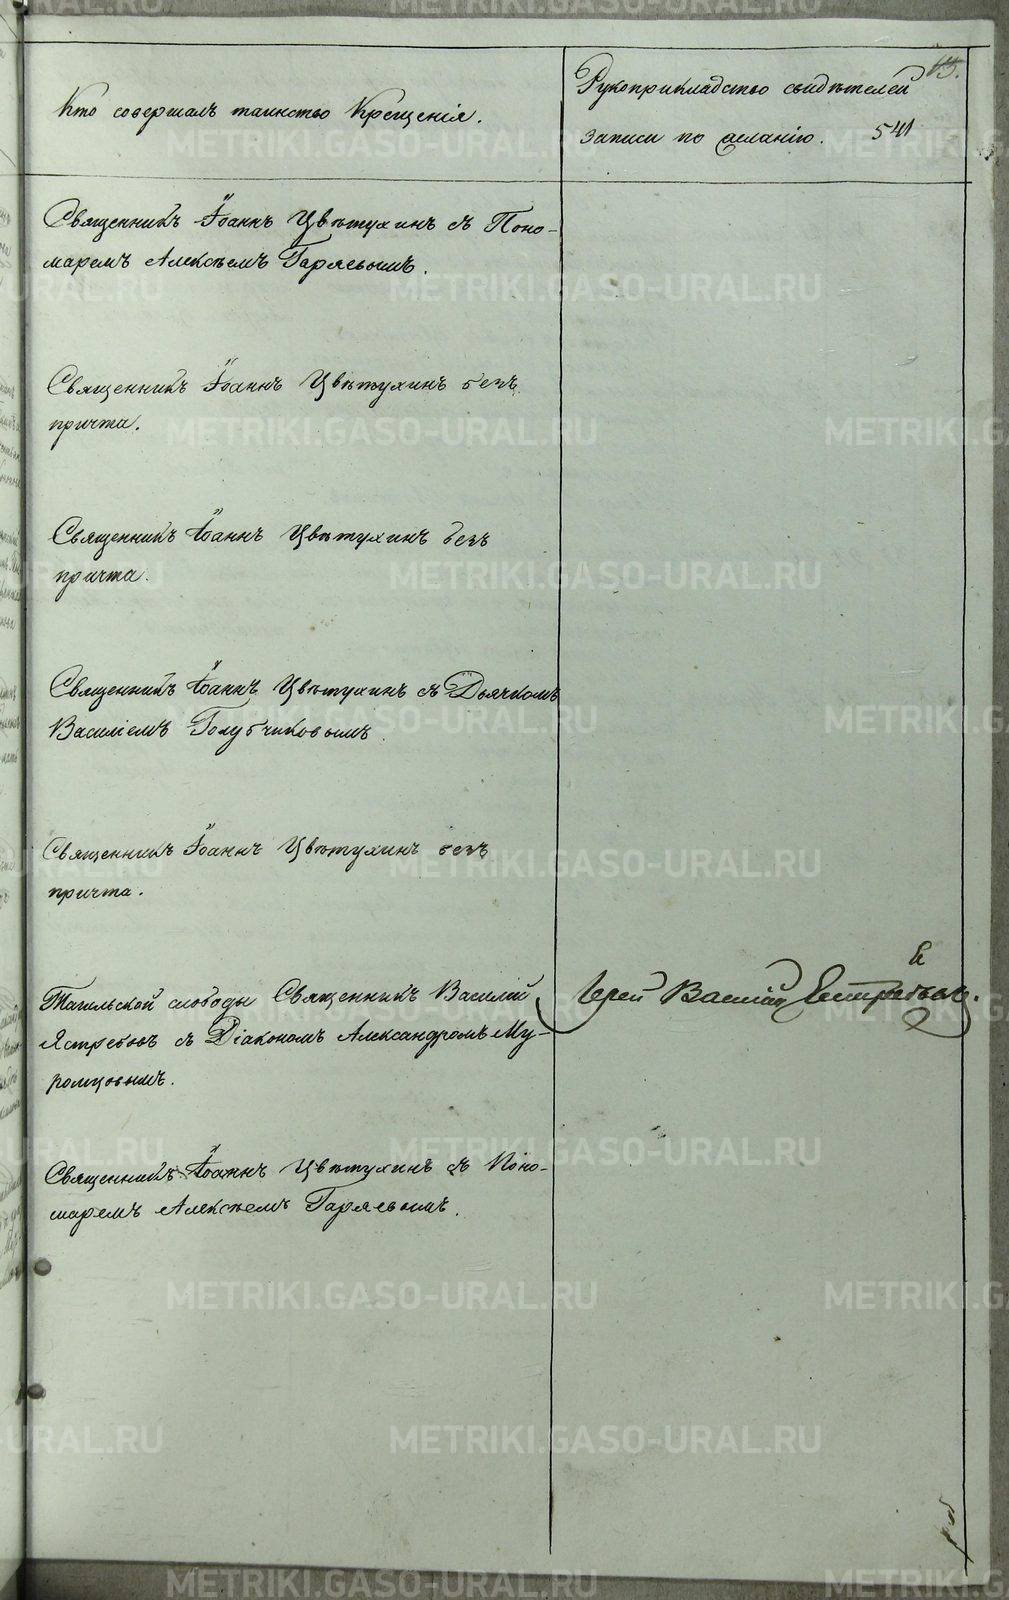 Кто совершалъ таинство Крещенія.
Рукоприкладство свидѣтелей
записи по желанію.
13.
541
Священникъ Іоаннъ Цвѣтухинъ съ Поно-
маремъ Алексѣемъ Гаряевымъ.
Священникъ Іоаннъ Цвѣтухинъ безъ
причта.
Священникъ Іоаннъ Цвѣтухинъ безъ
причта.
Священникъ Іоаннъ Цвѣтухинъ съ Дьячкомъ
Василіемъ Голубчиковымъ.
Священникъ Іоаннъ Цвѣтухинъ безъ
причта.
Тагильской слободы Священникъ Василій
Ястребовъ съ Діакономъ Александромъ Му-
ромцовымъ.
Іерей Василій Ястребовъ.
Священникъ Іоаннъ Цвѣтухинъ съ Поно-
маремъ Алексѣемъ Гаряевымъ.
METRIKI.GASO-URAL.RU